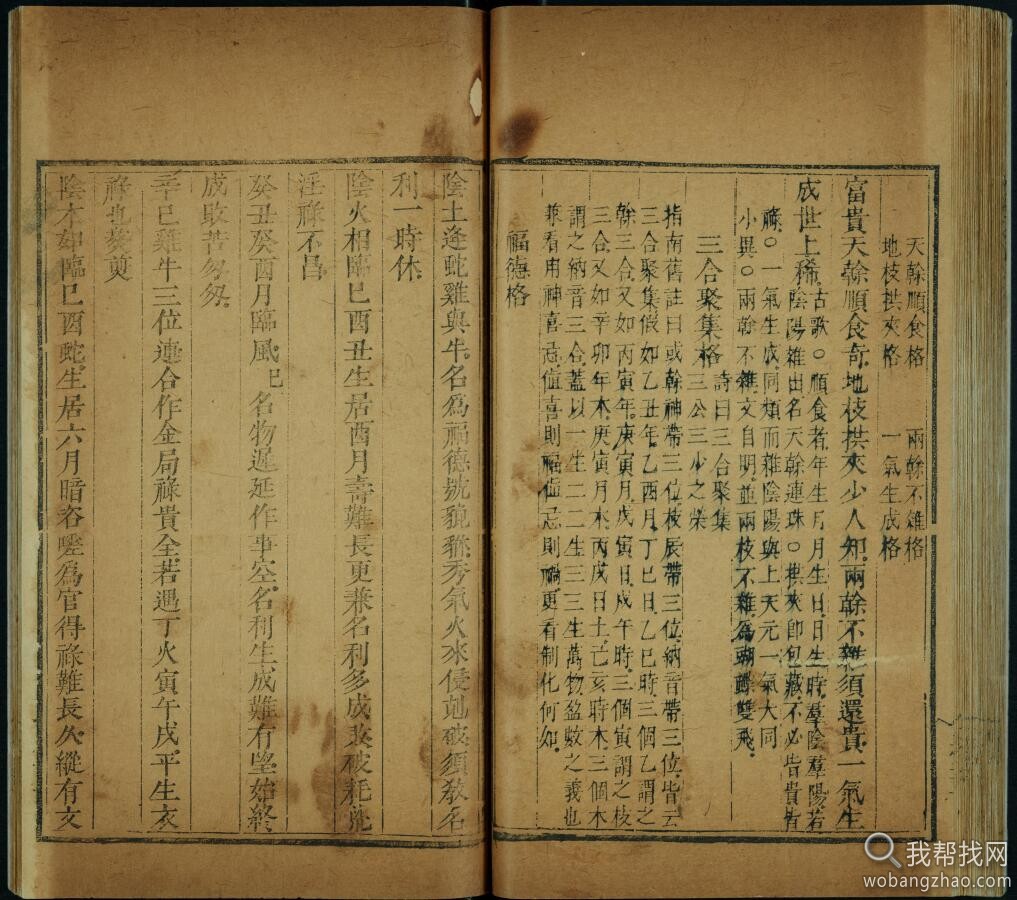 天幹順食格　兩幹不雜格
地枝拱夾格　一氣生成格
富貴天幹順食奇地枝拱夾少人知兩幹不雜須還貴一氣生
成世上稀
古歌○順食者年生月月生日日生時羣陰羣陽若
陰陽雜出名天幹連珠○拱夾卽包藏不必皆貴皆
祿○一氣生成同類而雜陰陽與上天元一氣大同
小異○兩幹不雜文自明並兩枝不雜爲蝴蝶雙飛
三合聚集格
詩曰三合聚集
三公三少之榮
指南舊註曰或幹神帶三位枝辰帶三位納音帶三位皆云
三合聚集假如乙丑年乙酉月丁巳日乙巳時三個乙謂之
幹三合又如丙寅年庚寅月戊寅日戊午時三個寅謂之枝
三合又如辛卯年木庚寅月木丙戌日土己亥時木三個木
謂之納音三合蓋以一生二二生三三生萬物盈數之義也
兼看用神喜忌値喜則福値忌則禍更看制化何如
福德格
陰土逢蛇雞與牛名爲福德號貔貅秀氣火來侵剋破須敎名
利一時休
陰火相臨巳酉丑生居酉月壽難長更兼名利多成敗破耗
淫祿不昌
癸丑癸酉月臨風巳名物遲延作事空名利生成難有望始終
成敗苦匆匆
辛巳雞牛三位連合作金局祿貴全若遇丁火寅午戌平生衣
祿也熬煎
陰木如臨巳酉蛇生居六月暗咨嗟爲官得祿難長久縱有文
我帮找网
wobangzhao.com